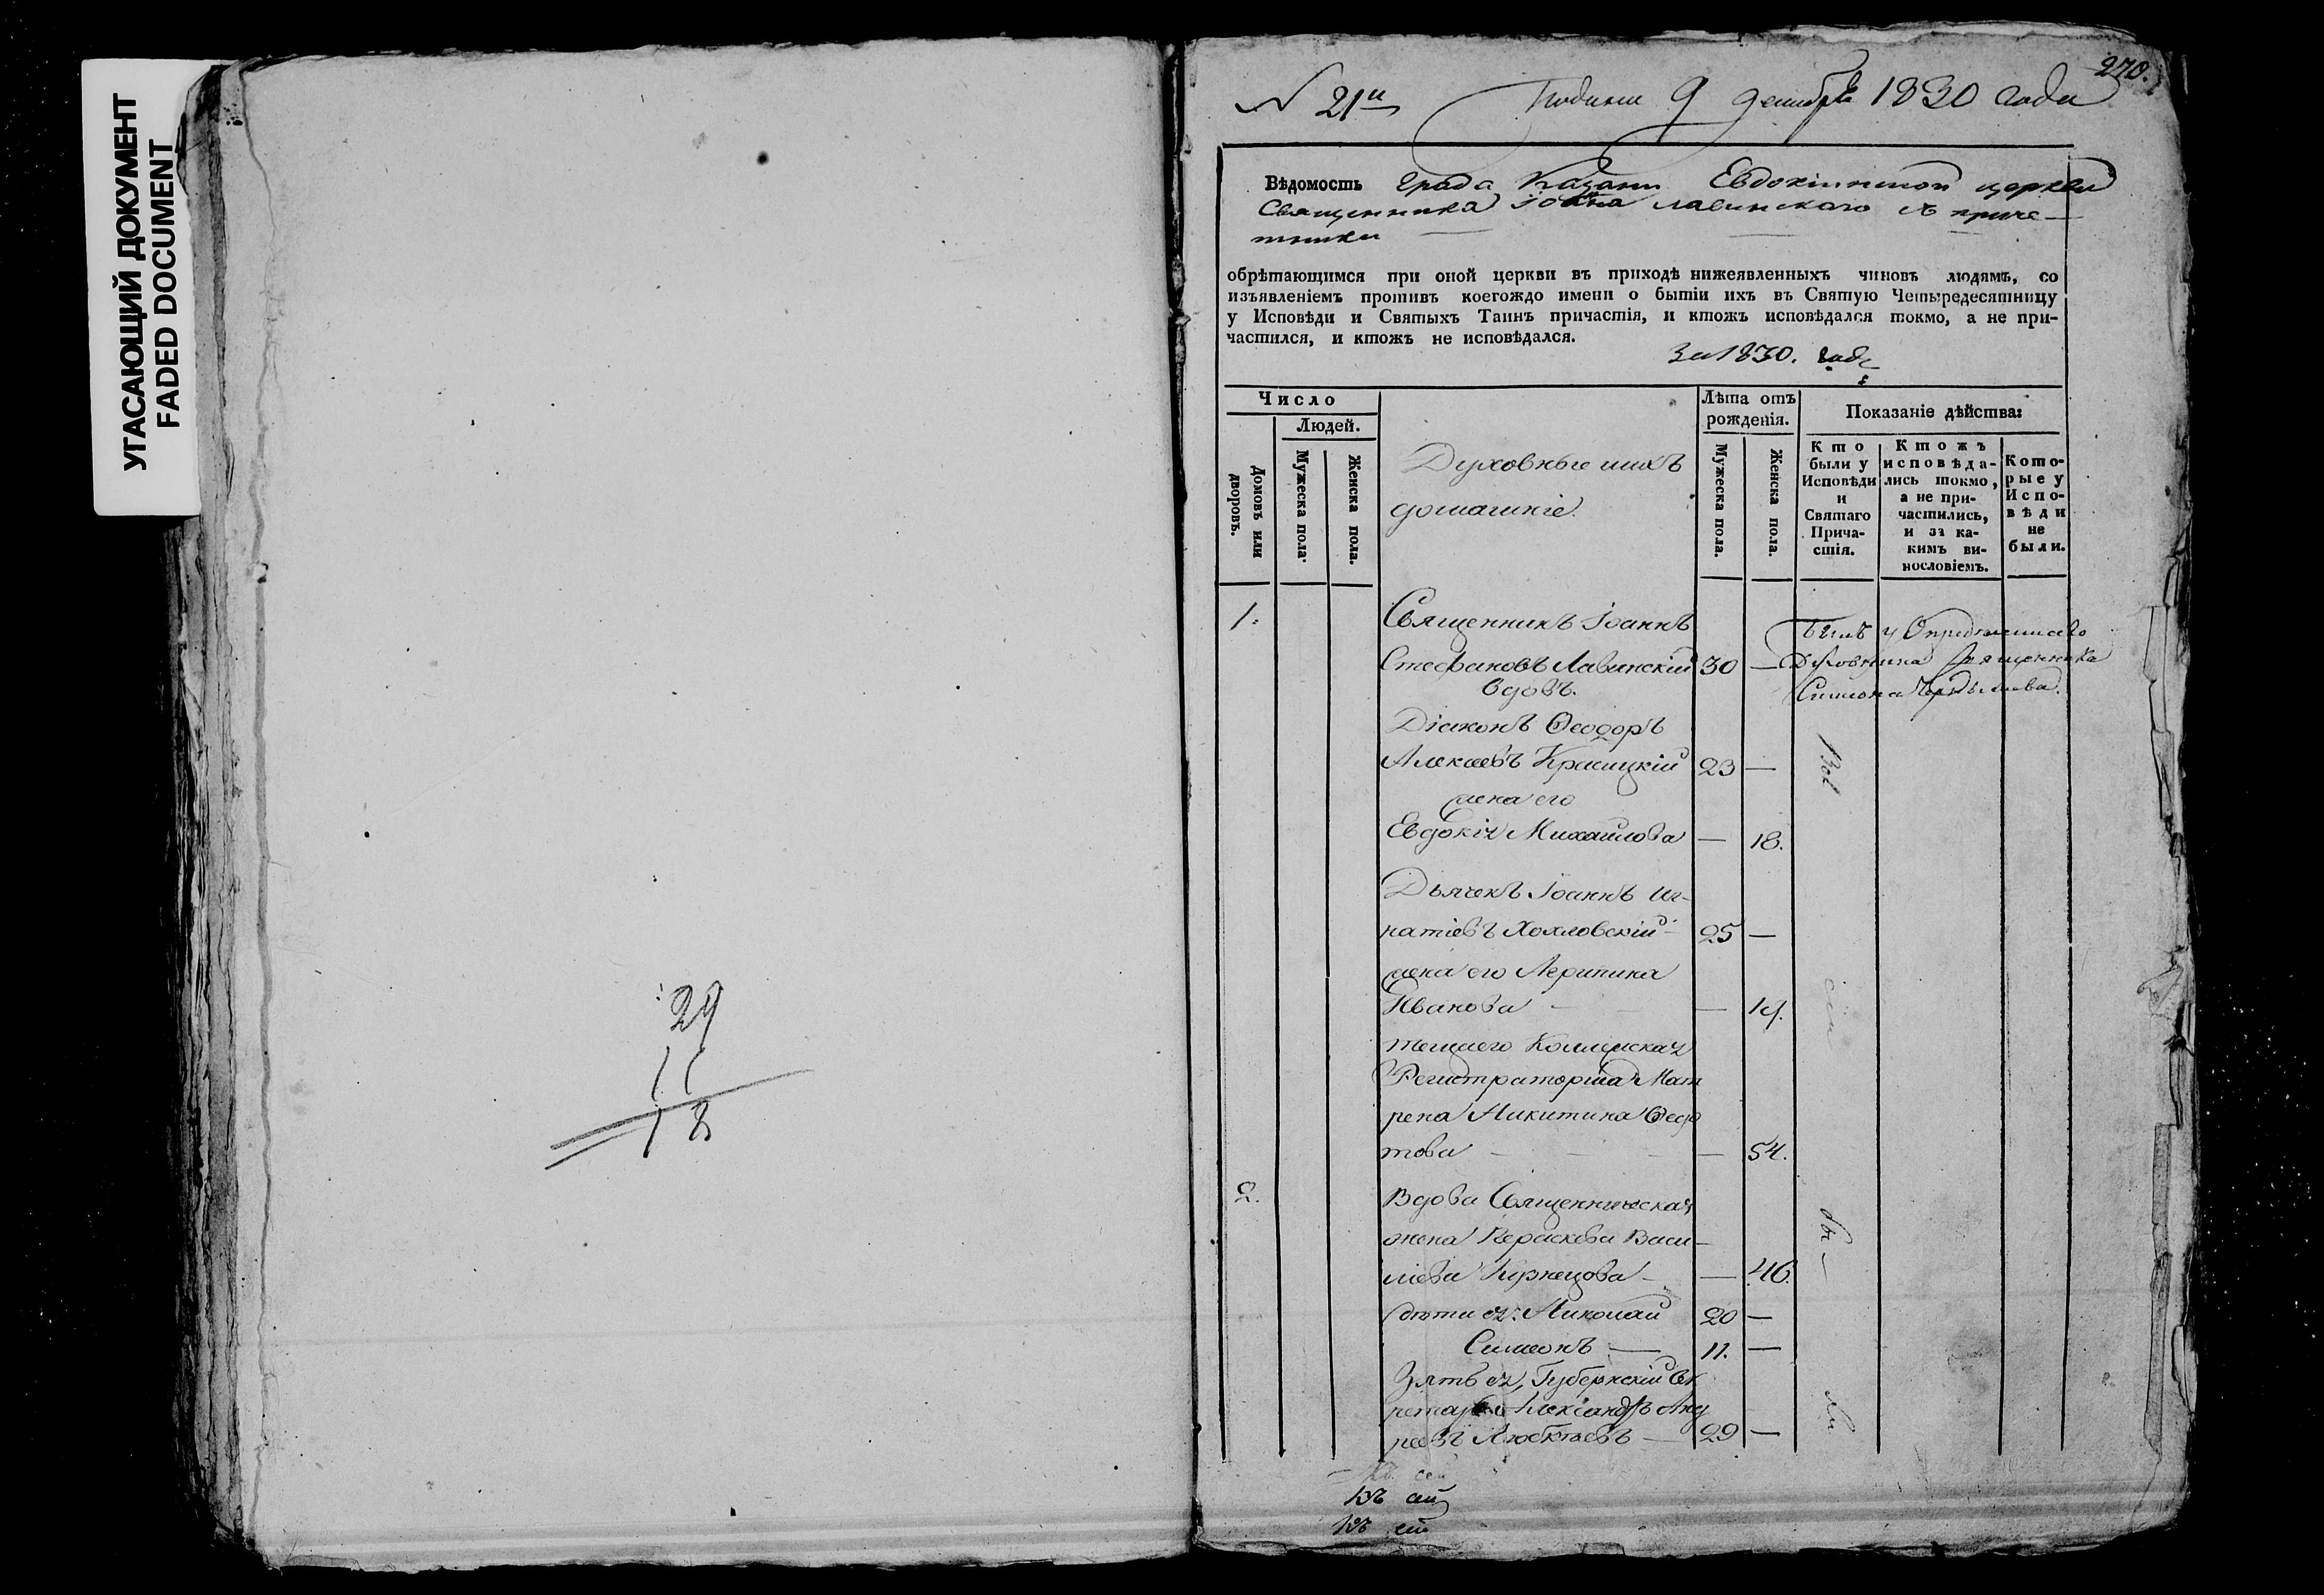 УГАСАЮЩИЙ ДОКУМЕНТ
FADED DOCUMENT
29
11
18
270.
N 21й Подана 9 декабря 1830 года
Вѣдомость града Казани Евдокіинской церкви
Священника Іоанна Лавинскаго съ приче-
тники
обрѣтающимся при оной церкви въ приходѣ нижеявленныхъ чиновъ людямъ, со
изъявленіемъ противъ коегождо имени о бытіи ихъ въ Святую Четыредесятницу
у Исповѣди и Святыхъ Таинъ причастія, и ктожъ исповѣдался токмо, а не при-
частился, и ктожъ не исповѣдался.
За 1830. годъ
Число
Людей.
Домовъ или дворовъ.
Мужеска пола.
Женска пола.
Духовные и ихъ
домашніе.
Лѣта отъ
рожденія.
Мужеска пола.
Женска пола.
Показаніе дѣйства:
Кто
были у
Исповѣди
и
Святаго
Прича-
стія.
Ктожъ
исповѣда-
лись токмо,
а не при-
частились,
и за ка-
кимъ ви-
нословіемъ.
Кото-
рые у
Испо-
вѣди
не
были.
1. Священникъ Іоаннъ
Стефановъ Лавинскій 30 —
вдовъ.
Былъ у Опредѣленнаго
Духовника Священника
Симона
Діаконъ Ѳеодоръ
Алексѣевъ Красицкій 23 —
жена его
Евдокія Михайлова — 18.
Дьячекъ Іоаннъ Иг-
натіевъ Хохловскій 25 —
жена его Агрипина
Иванова — 19.
теща его Коллежская
Регистраторша Мат
рена Никитина Ѳедо
това — 54.
2. Вдова Священническая
жена Параскева Васи-
ліева Кузнецова — 46.
дѣти ея: Николай 20 —
Симеонъ — 11. —
Зять ея, Губернскій Сек
ретарь Александръ Анд
реевъ — 29 —
Всѣ
бы —
ли
къ сей
къ сей
къ сей